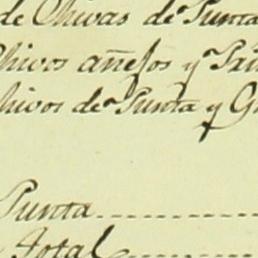 de Chivas de Punta
Chivos añejos y Pri
hivos de Punta y G
Punta
Total